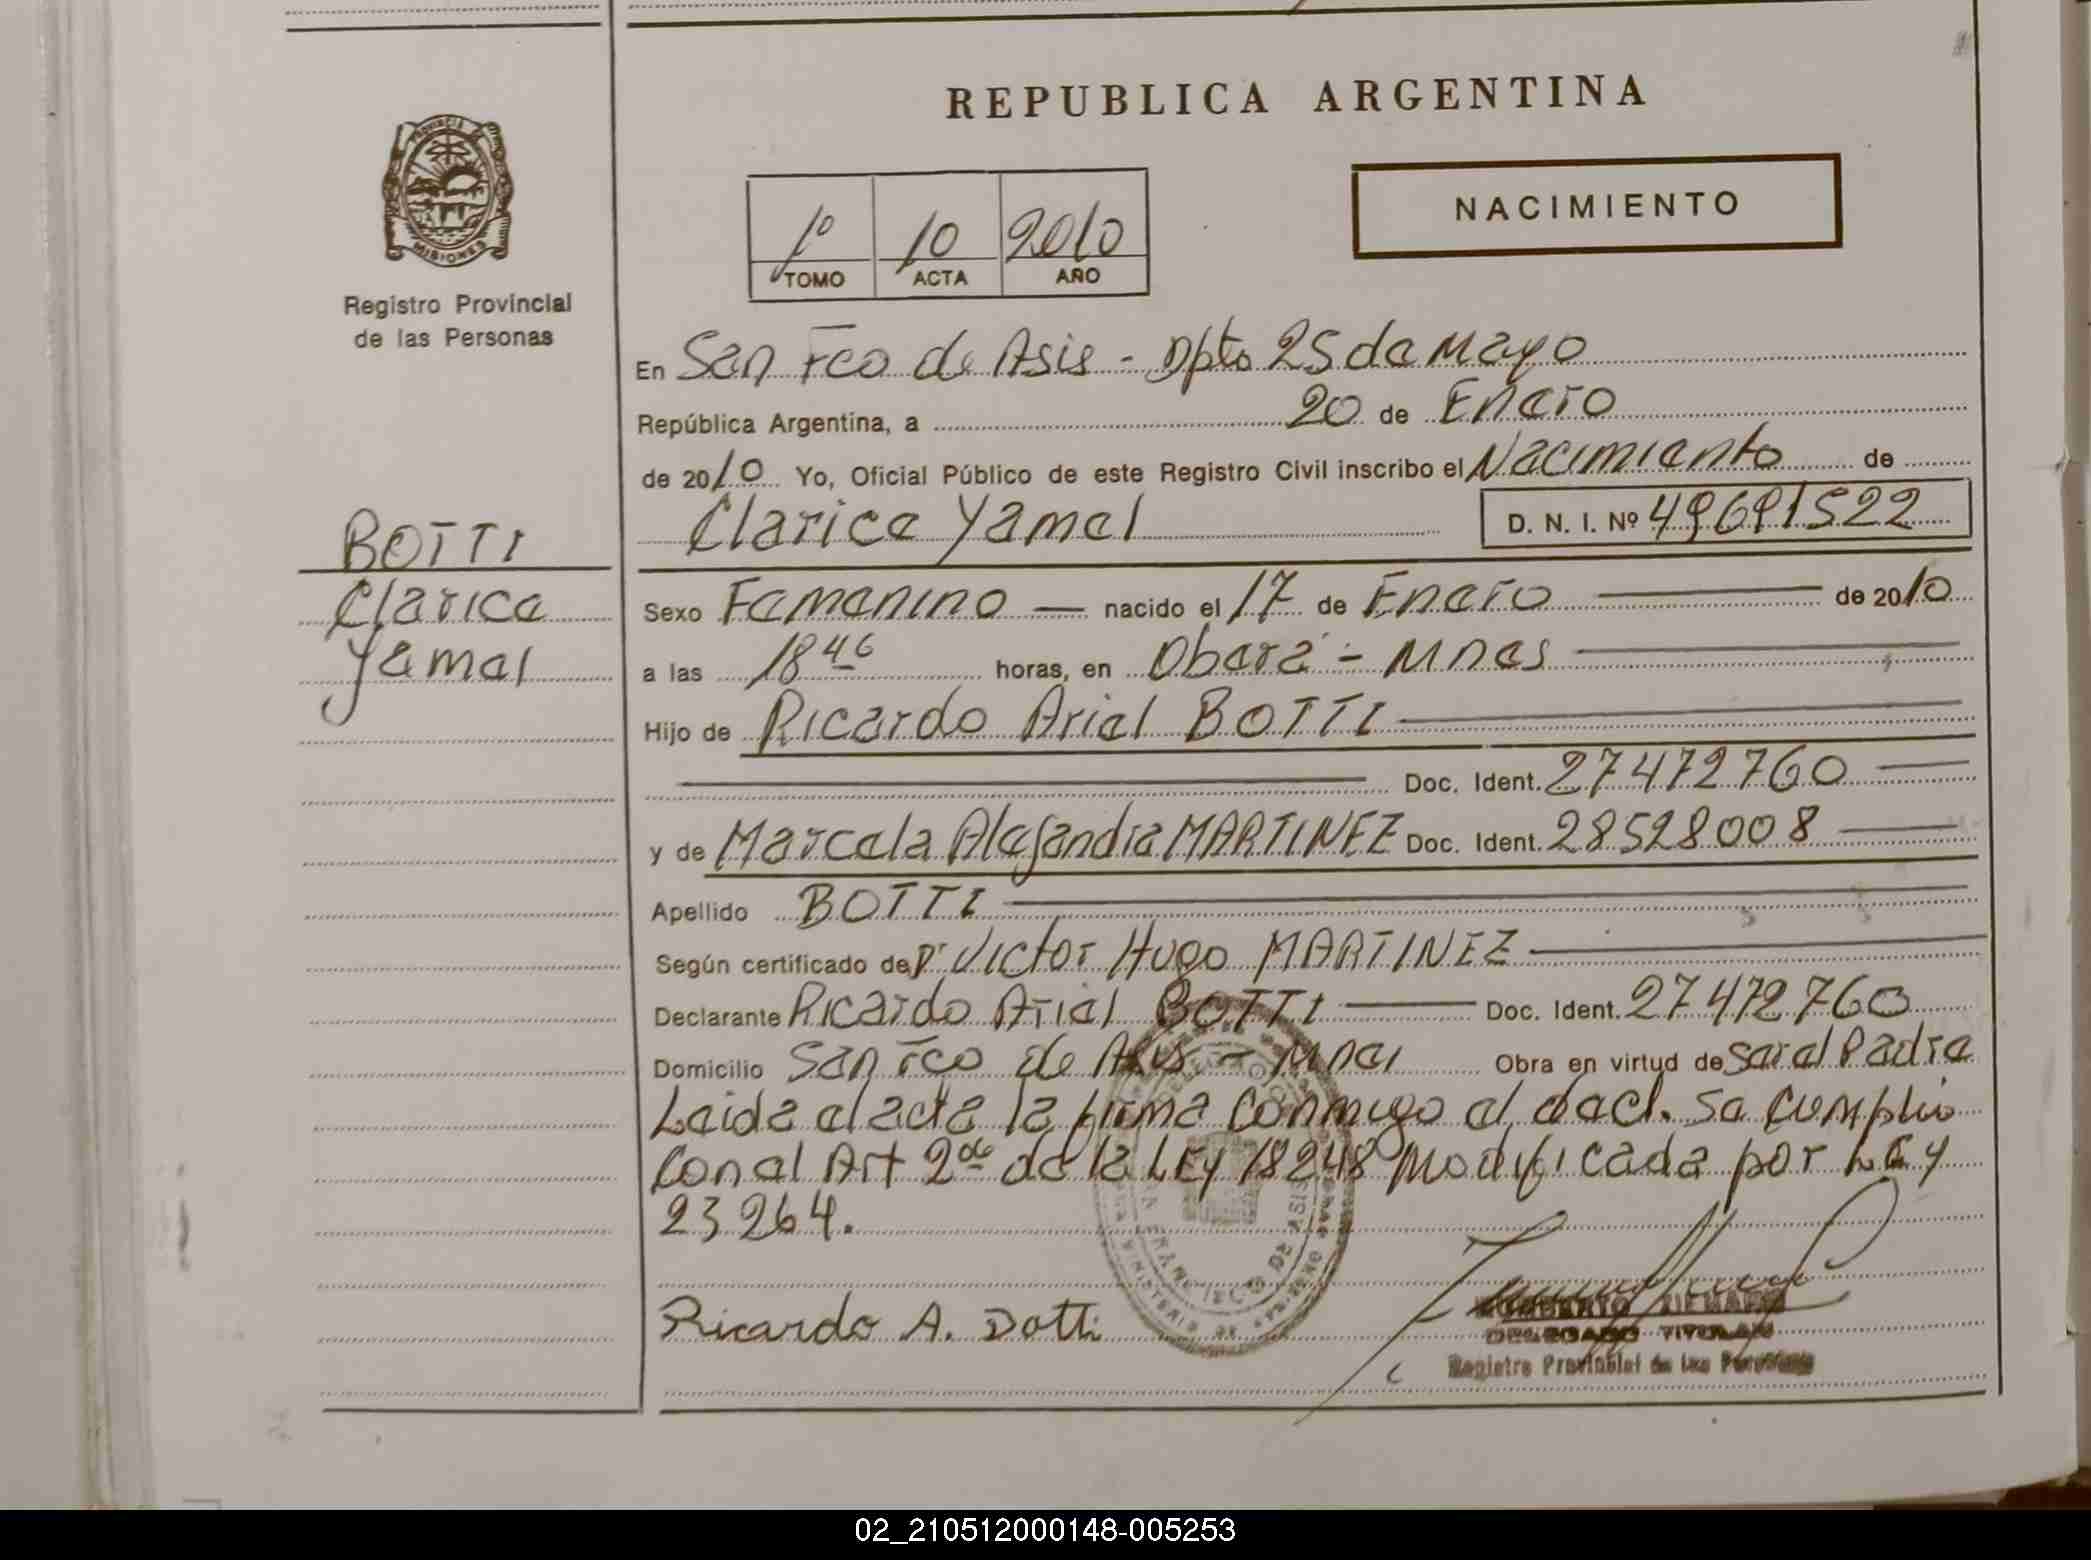 REPUBLICA ARGENTINA
PROVINCIA DE
MISIONES
Registro Provincial
de las Personas
1º 10 2010
TOMO ACTA AÑO
NACIMIENTO
En San Fco de Asis - Dpto 25 de Mayo
República Argentina, a 20 de Enero
de 2010 Yo, Oficial Público de este Registro Civil inscribo el Nacimiento de
Clarice Yamel D. N. I. Nº 49691522
BOTTI
Clarice
Yamel
Sexo Femenino nacido el 17 de Enero de 2010
a las 18 46 horas, en Oberá - Mnes
Hijo de Ricardo Ariel BOTTI
Doc. Ident. 27472760
y de Marcela Alejandra MARTINEZ Doc. Ident. 28528008
Apellido BOTTI
Según certificado de Dr Victor Hugo MARTINEZ
Declarante Ricardo Ariel BOTTI Doc. Ident. 27472760
Domicilio San Fco de Asis - Mnes Obra en virtud de Ser el Padre
Leida el acta la firma conmigo el decl. Se cumplio
con el Art 2do de la LEy 18248 Modificada por Ley
23264.
Ricardo A. Botti
DELEGADO TITULAR
Registro Provincial de las Personas
02_210512000148-005253